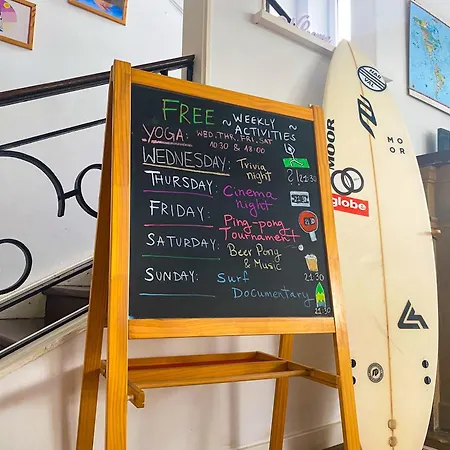 FREE ~ WEEKLY ACTIVITIES ~
YOGA: WED, THR, FRI, SAT
10:30 & 18:00
WEDNESDAY: Trivia night 21:30
THURSDAY: Cinema night 21:30
FRIDAY: Ping-pong Tournament 21:30
SATURDAY: Beer Pong & Music 21:30
SUNDAY: Surf Documentary 21:30
MOOR
MOOR
globe